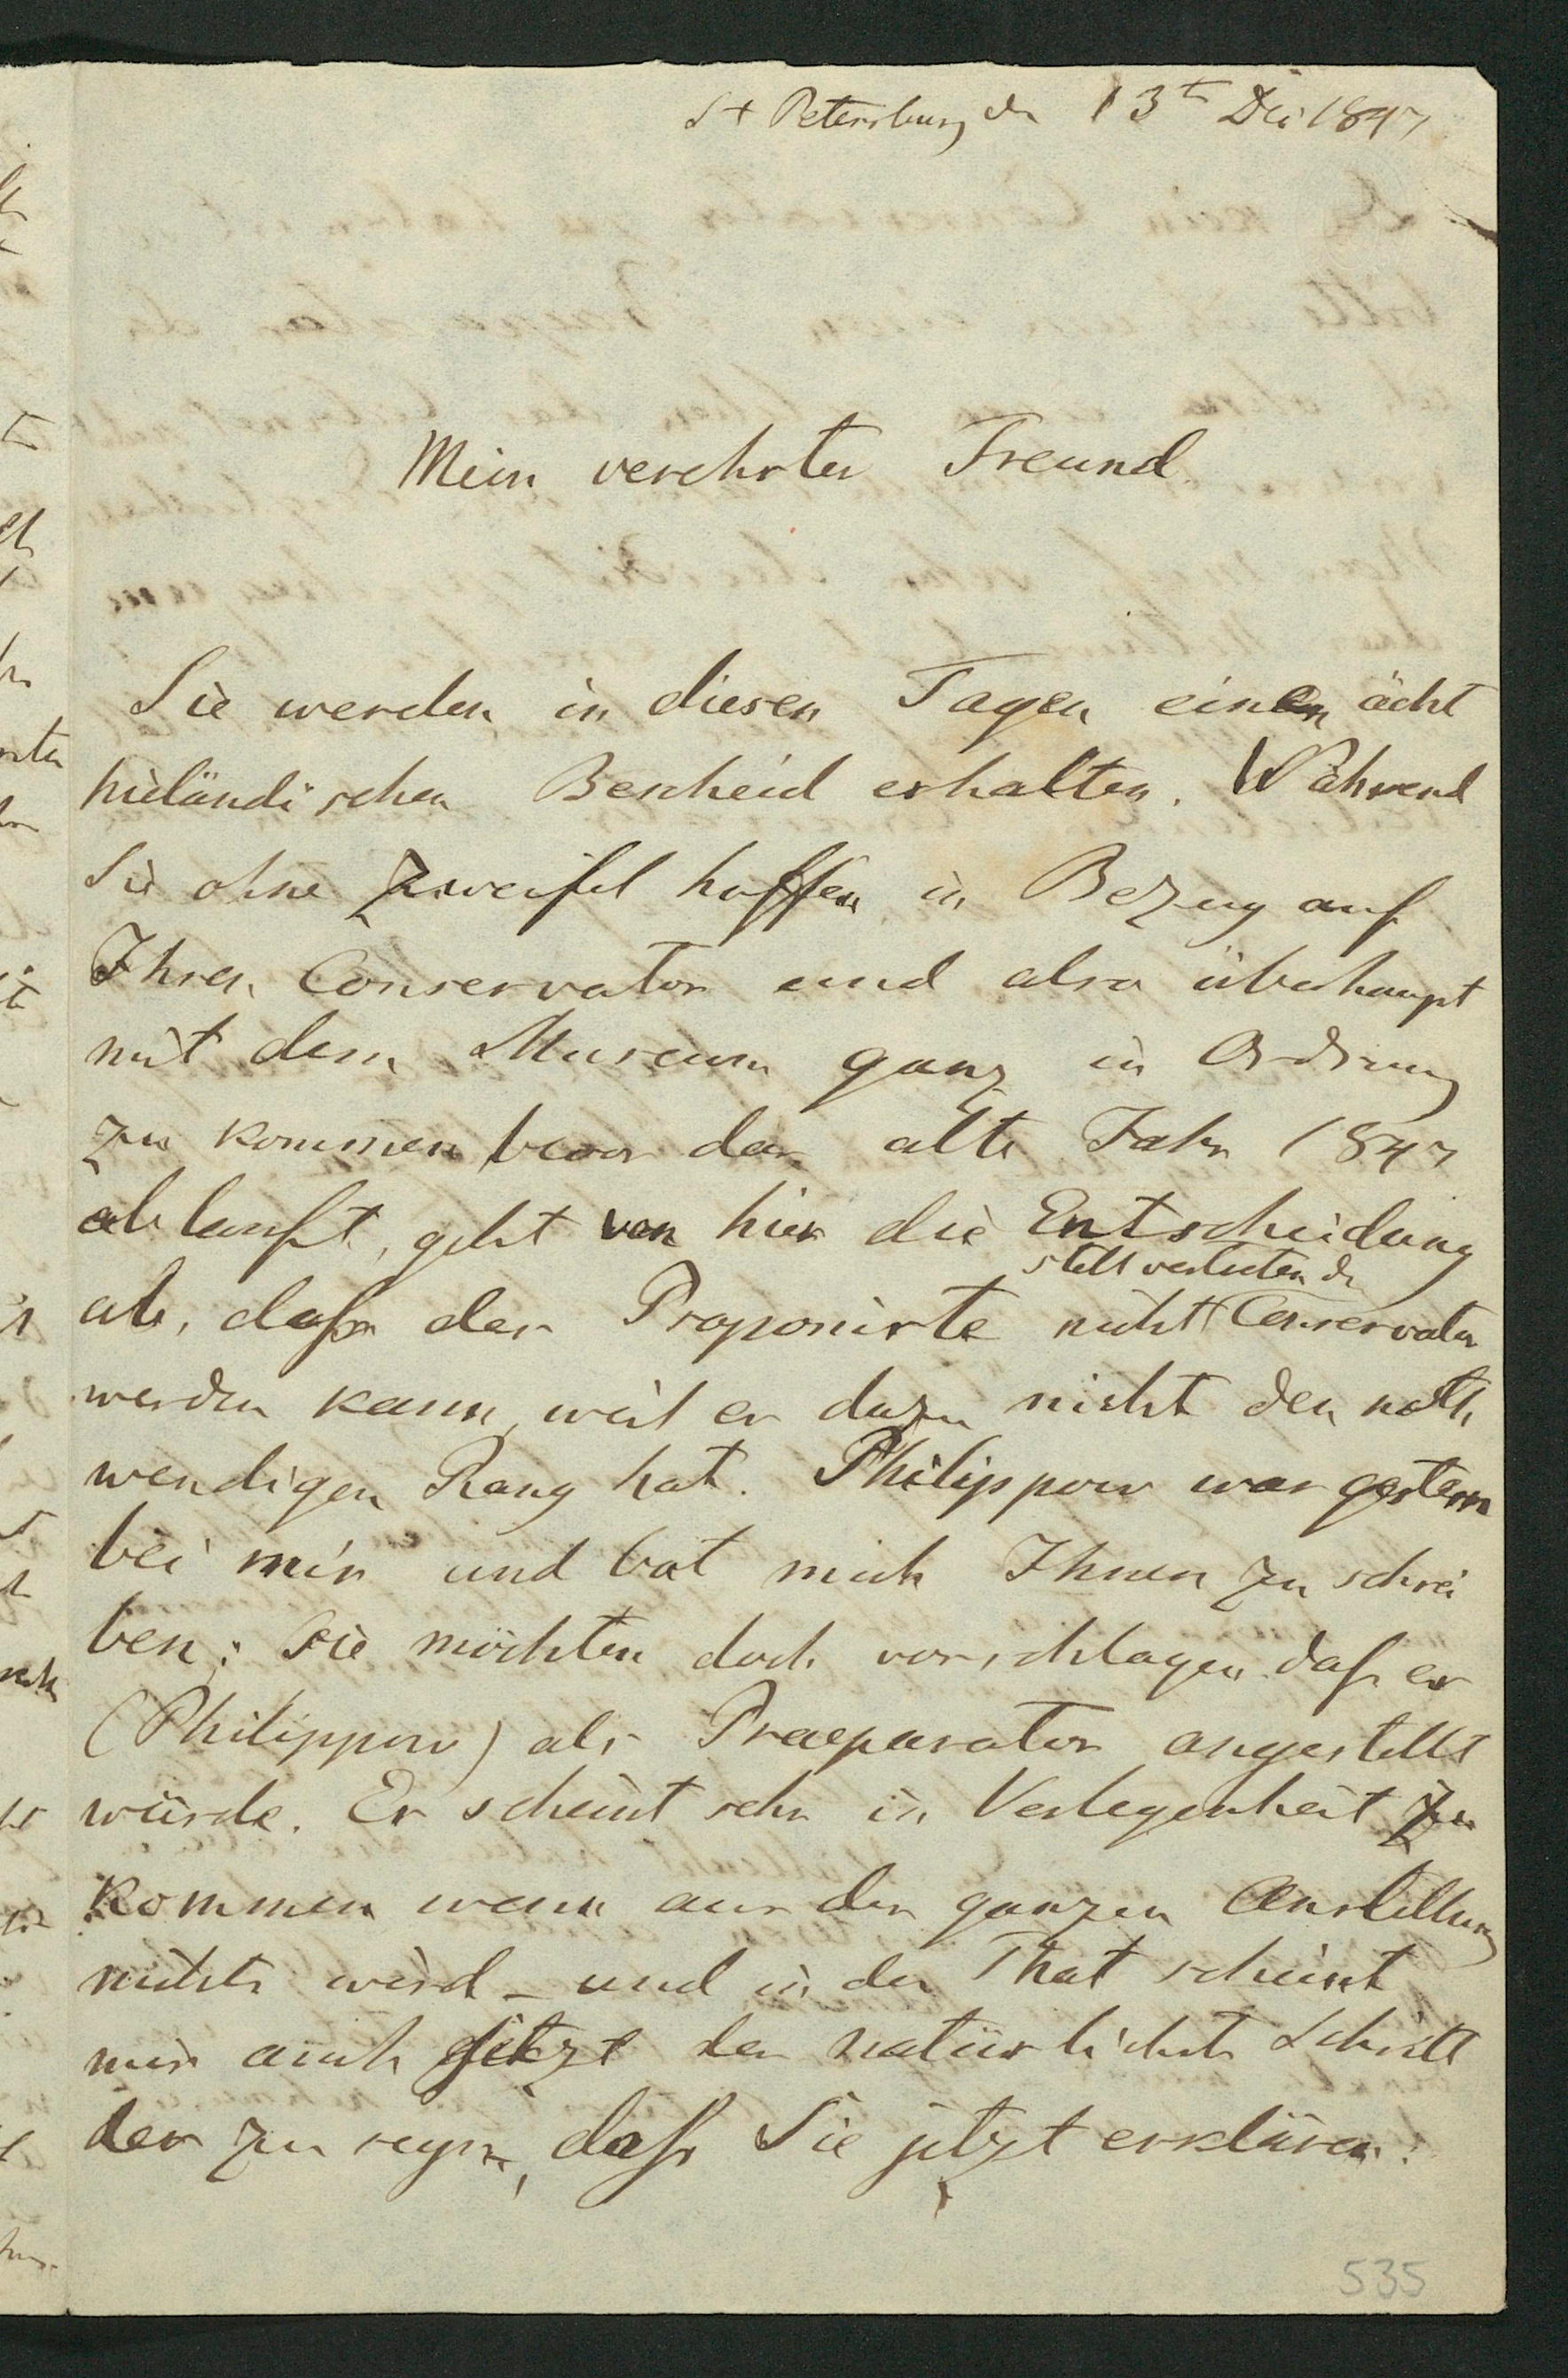 St Petersburg dn 13ten Dec 1847
Mein verehrter Freund.
Sie werden in diesen Tagen einen ächt
hieländischen Bescheid erhalten. Während
Sie ohne Zweifel hoffen in Bezug auf
Ihren Conservator und also überhaupt
mit dem Museum ganz in Ordnung
zu kommen bevor das alte Jahr 1847
ablauft, geht von hier die Entscheidung
stellvertretender
ab, daß der Proponirte nicht Conservator
werden kann, weil er dazu nicht den noth
wendigen Rang hat. Philippow war gestern
bei mir und bat mich Ihnen zu schrei
ben: Sie möchten doch vorschlagen daß er
(Philippow) als Praeparator angestellt
würde. Er scheint sehr in Verlegenheit zu
kommen wenn aus der ganzen Anstellung
nichts wird – und in der That scheint
mir auch jetzt der natürlichste Schritt
der zu seyn, daß Sie jetzt erklären:
535